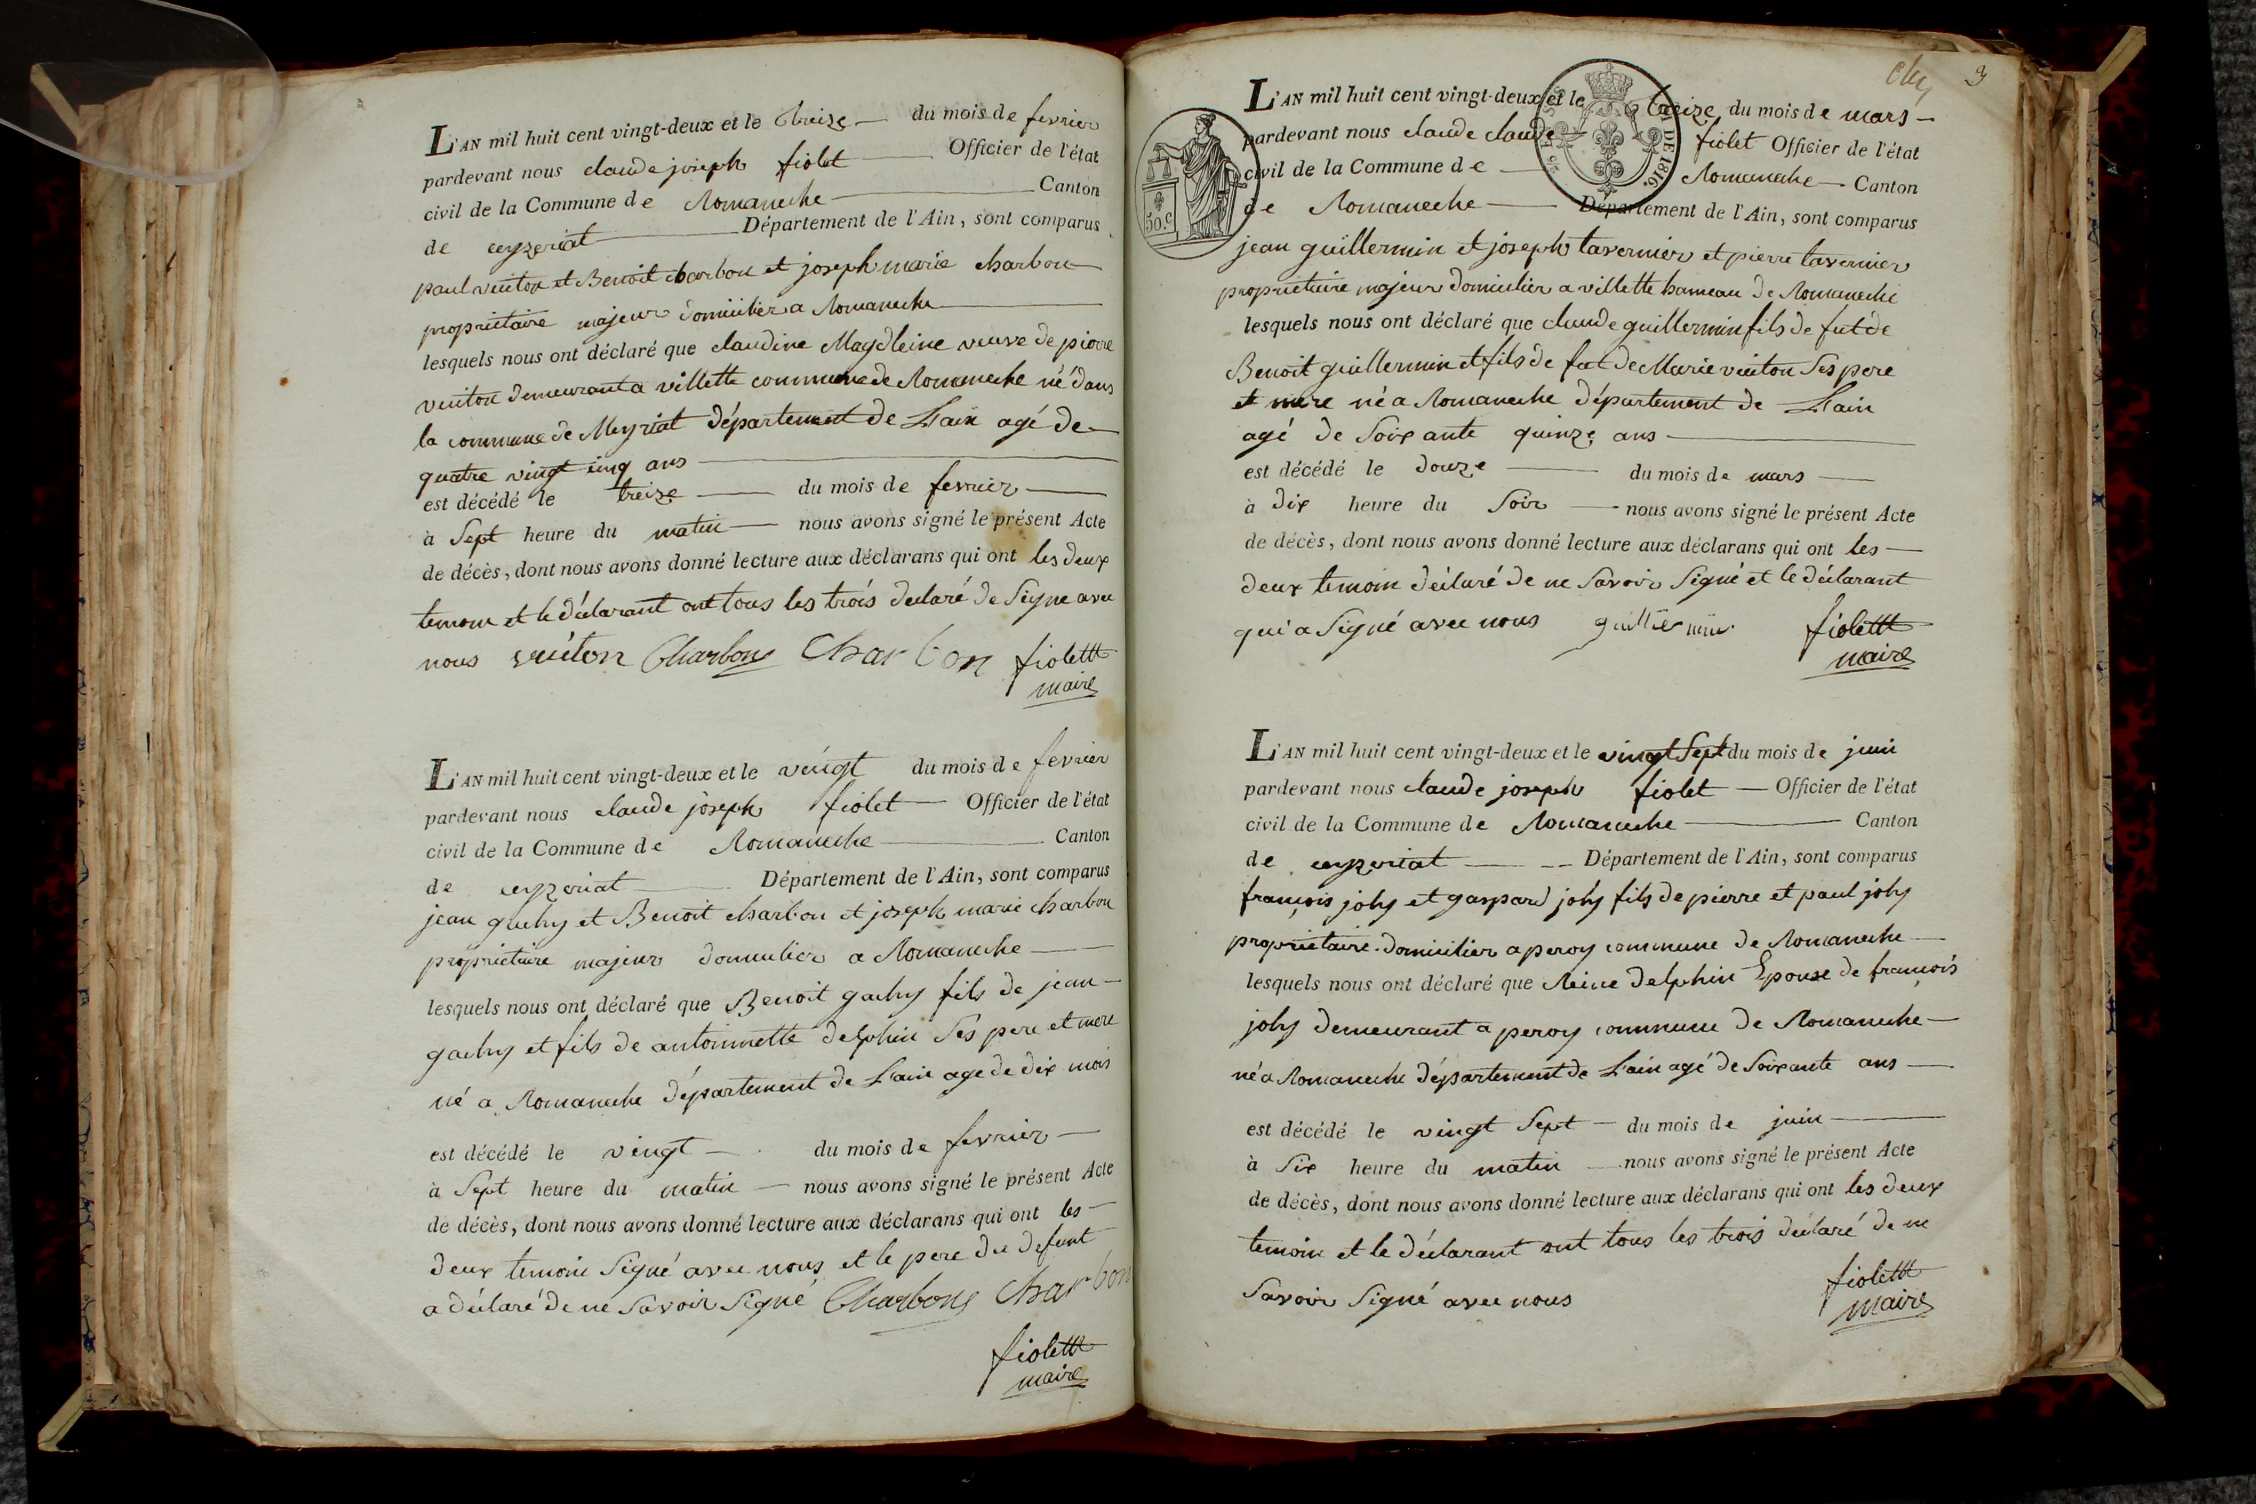 L'AN mil huit cent vingt-deux et le treize du mois de fevrier
pardevant nous claude joseph fiolet Officier de l'état
civil de la Commune de Romaneche Canton
de ceyzeriat Département de l'Ain, sont comparus
paul vuiton et Benoit charbon et joseph marie charbon
proprietaire majeur domicilier a Romaneche
lesquels nous ont déclaré que claudine Magdleine veuve de pierre
vuiton demeurant a villette commune de Romaneche né dans
la commune de Meyriat département de L'ain agé de
quatre vingt cinq ans
est décédé le treize du mois de fevrier
à Sept heure du matin nous avons signé le présent Acte
de décès, dont nous avons donné lecture aux déclarans qui ont les deux
temoin et le déclarant ont tous les trois declaré de Signe avec
nous vuiton Charbon Charbon fiolet
maire
L'AN mil huit cent vingt-deux et le vingt du mois de fevrier
pardevant nous claude joseph fiolet Officier de l'état
civil de la Commune de Romaneche Canton
de ceyzeriat Département de l'Ain, sont comparus
jean gachy et Benoit charbon et joseph marie charbon
proprietaire majeur domicilier a Romaneche
lesquels nous ont déclaré que Benoit gachy fils de jean
gachy et fils de antoinnette delphin Ses pere et mere
né a Romaneche département de L'ain age de dix mois
est décédé le vingt du mois de fevrier
à Sept heure du matin nous avons signé le présent Acte
de décès, dont nous avons donné lecture aux déclarans qui ont les
deux temoin Signé avec nous et le pere du defunt
a déclaré de ne Savoir Signé Charbon Charbon
fiolet
maire
3
L'AN mil huit cent vingt-deux et le treize du mois de mars
pardevant nous claude claude fiolet Officier de l'état
civil de la Commune de Romaneche Canton
de Romaneche Département de l'Ain, sont comparus
50 c.
DE 1816.
jean guillermin et joseph tavernier et pierre tavernier
proprietaire majeur domicilier a villette hameau de Romaneche
lesquels nous ont déclaré que claude guillermin fils de fut de
Benoit guillermin et fils de fut de Marie vuiton Ses pere
et mere né a Romaneche département de L'ain
agé de Soixante quinze ans
est décédé le douze du mois de mars
à dix heure du Soir nous avons signé le présent Acte
de décès, dont nous avons donné lecture aux déclarans qui ont les
deux temoin déclaré de ne Savoir Signé et le déclarant
qui a Signé avec nous guillermin fiolet
maire
L'AN mil huit cent vingt-deux et le vingt Sept du mois de juin
pardevant nous claude joseph fiolet Officier de l'état
civil de la Commune de Romaneche Canton
de ceyzeriat Département de l'Ain, sont comparus
françois joly et gaspard joly fils de pierre et paul joly
proprietaire domicilier a peroy commune de Romaneche
lesquels nous ont déclaré que Reine delphin Epouse de françois
joly demeurant a peroy commune de Romaneche
né a Romaneche département de L'ain agé de Soixante ans
est décédé le vingt Sept du mois de juin
à Six heure du matin nous avons signé le présent Acte
de décès, dont nous avons donné lecture aux déclarans qui ont les deux
temoin et le déclarant ont tous les trois déclaré de ne
Savoir Signé avec nous fiolet
maire